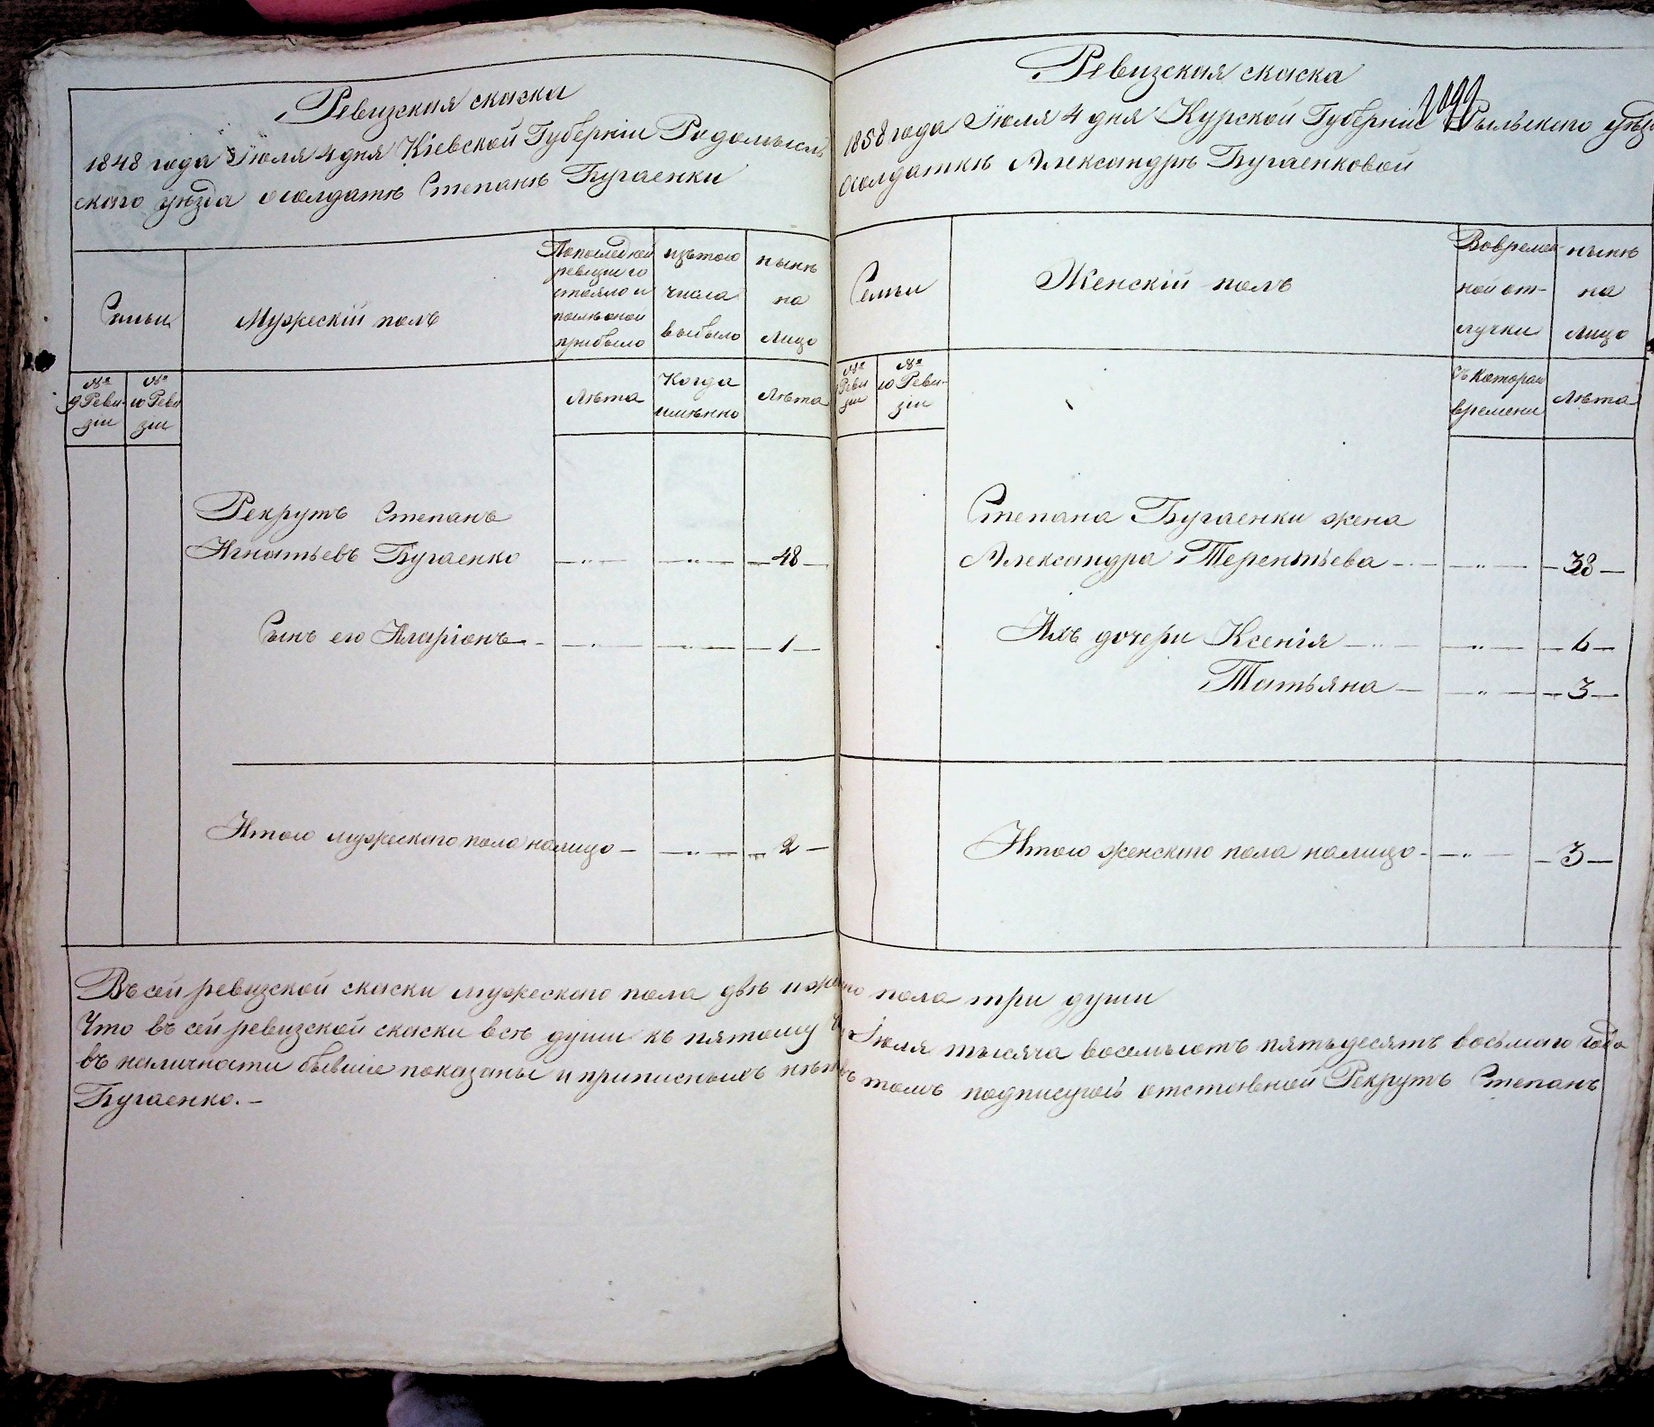 Ревизская скаска
1848 года Іюля 4 дня Кіевской Губерніи Радомысль
скаго уѣзда о солдатѣ Степанѣ Бугаенки
Семьи
Мужескій полъ
По последней
ревизіи со
стояло и
после оной
прибыло
изъ того
числа
выбыло
нынѣ
на
лицо
№
9 Реви-
зіи
№
10 Реви
зіи
Лѣта
Когда
именно
Лѣта
Рекрутъ Степанъ
Игнатьевъ Бугаенко — „ — — „ — — 48 —
Сынъ его Иларіонъ — — „ — — „ — — 1 —
Итого мужескаго пола налицо — — „ — — 2 —
Ревизская скаска
1858 года Іюля 4 дня Курской Губерніи Рыльскаго уѣз
о солдаткѣ Александрѣ Бугаенковой
Семьи
Женскій полъ
Во времен-
ной от-
лучки
нынѣ
на
лицо
№
9 Реви
зіи
№
10 Реви-
зіи
съ котораго
времени
Лѣта
Степана Бугаенки жена
Александра Терентьева — — „ — — 38 —
Ихъ дочери Ксенія — „ — — „ — — 6 —
Татьяна — — „ — — 3 —
Итого женскаго пола налицо — — „ — — 3 —
Въ сей ревизской скаски мужескаго пола двѣ и пола три души
Что въ сей ревизской скаски всѣ души къ пятому Іюля тысяча восемьсотъ пятьдесятъ восьмаго года
въ наличности бывшіе показаны и приписныхъ нѣтъ въ томъ подписуюсь отставной Рекрутъ Степанъ
Бугаенко. —